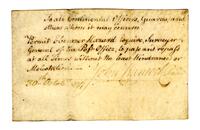 To all Continental Officers, Guards, and
others whom it may concern
Permit Ebenezer Hazard Esquire, Surveyor
General of the Post Office, to pass and repass
at all times without the least Hindrance or
Molestation
John Hancock